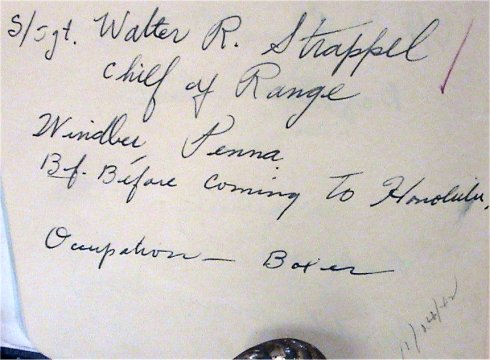 S/Sgt. Walter R. Strappel
Chief of Range
Windber, Penna.
Bf. Before coming To Honolulu,
Ocupation — Boxer